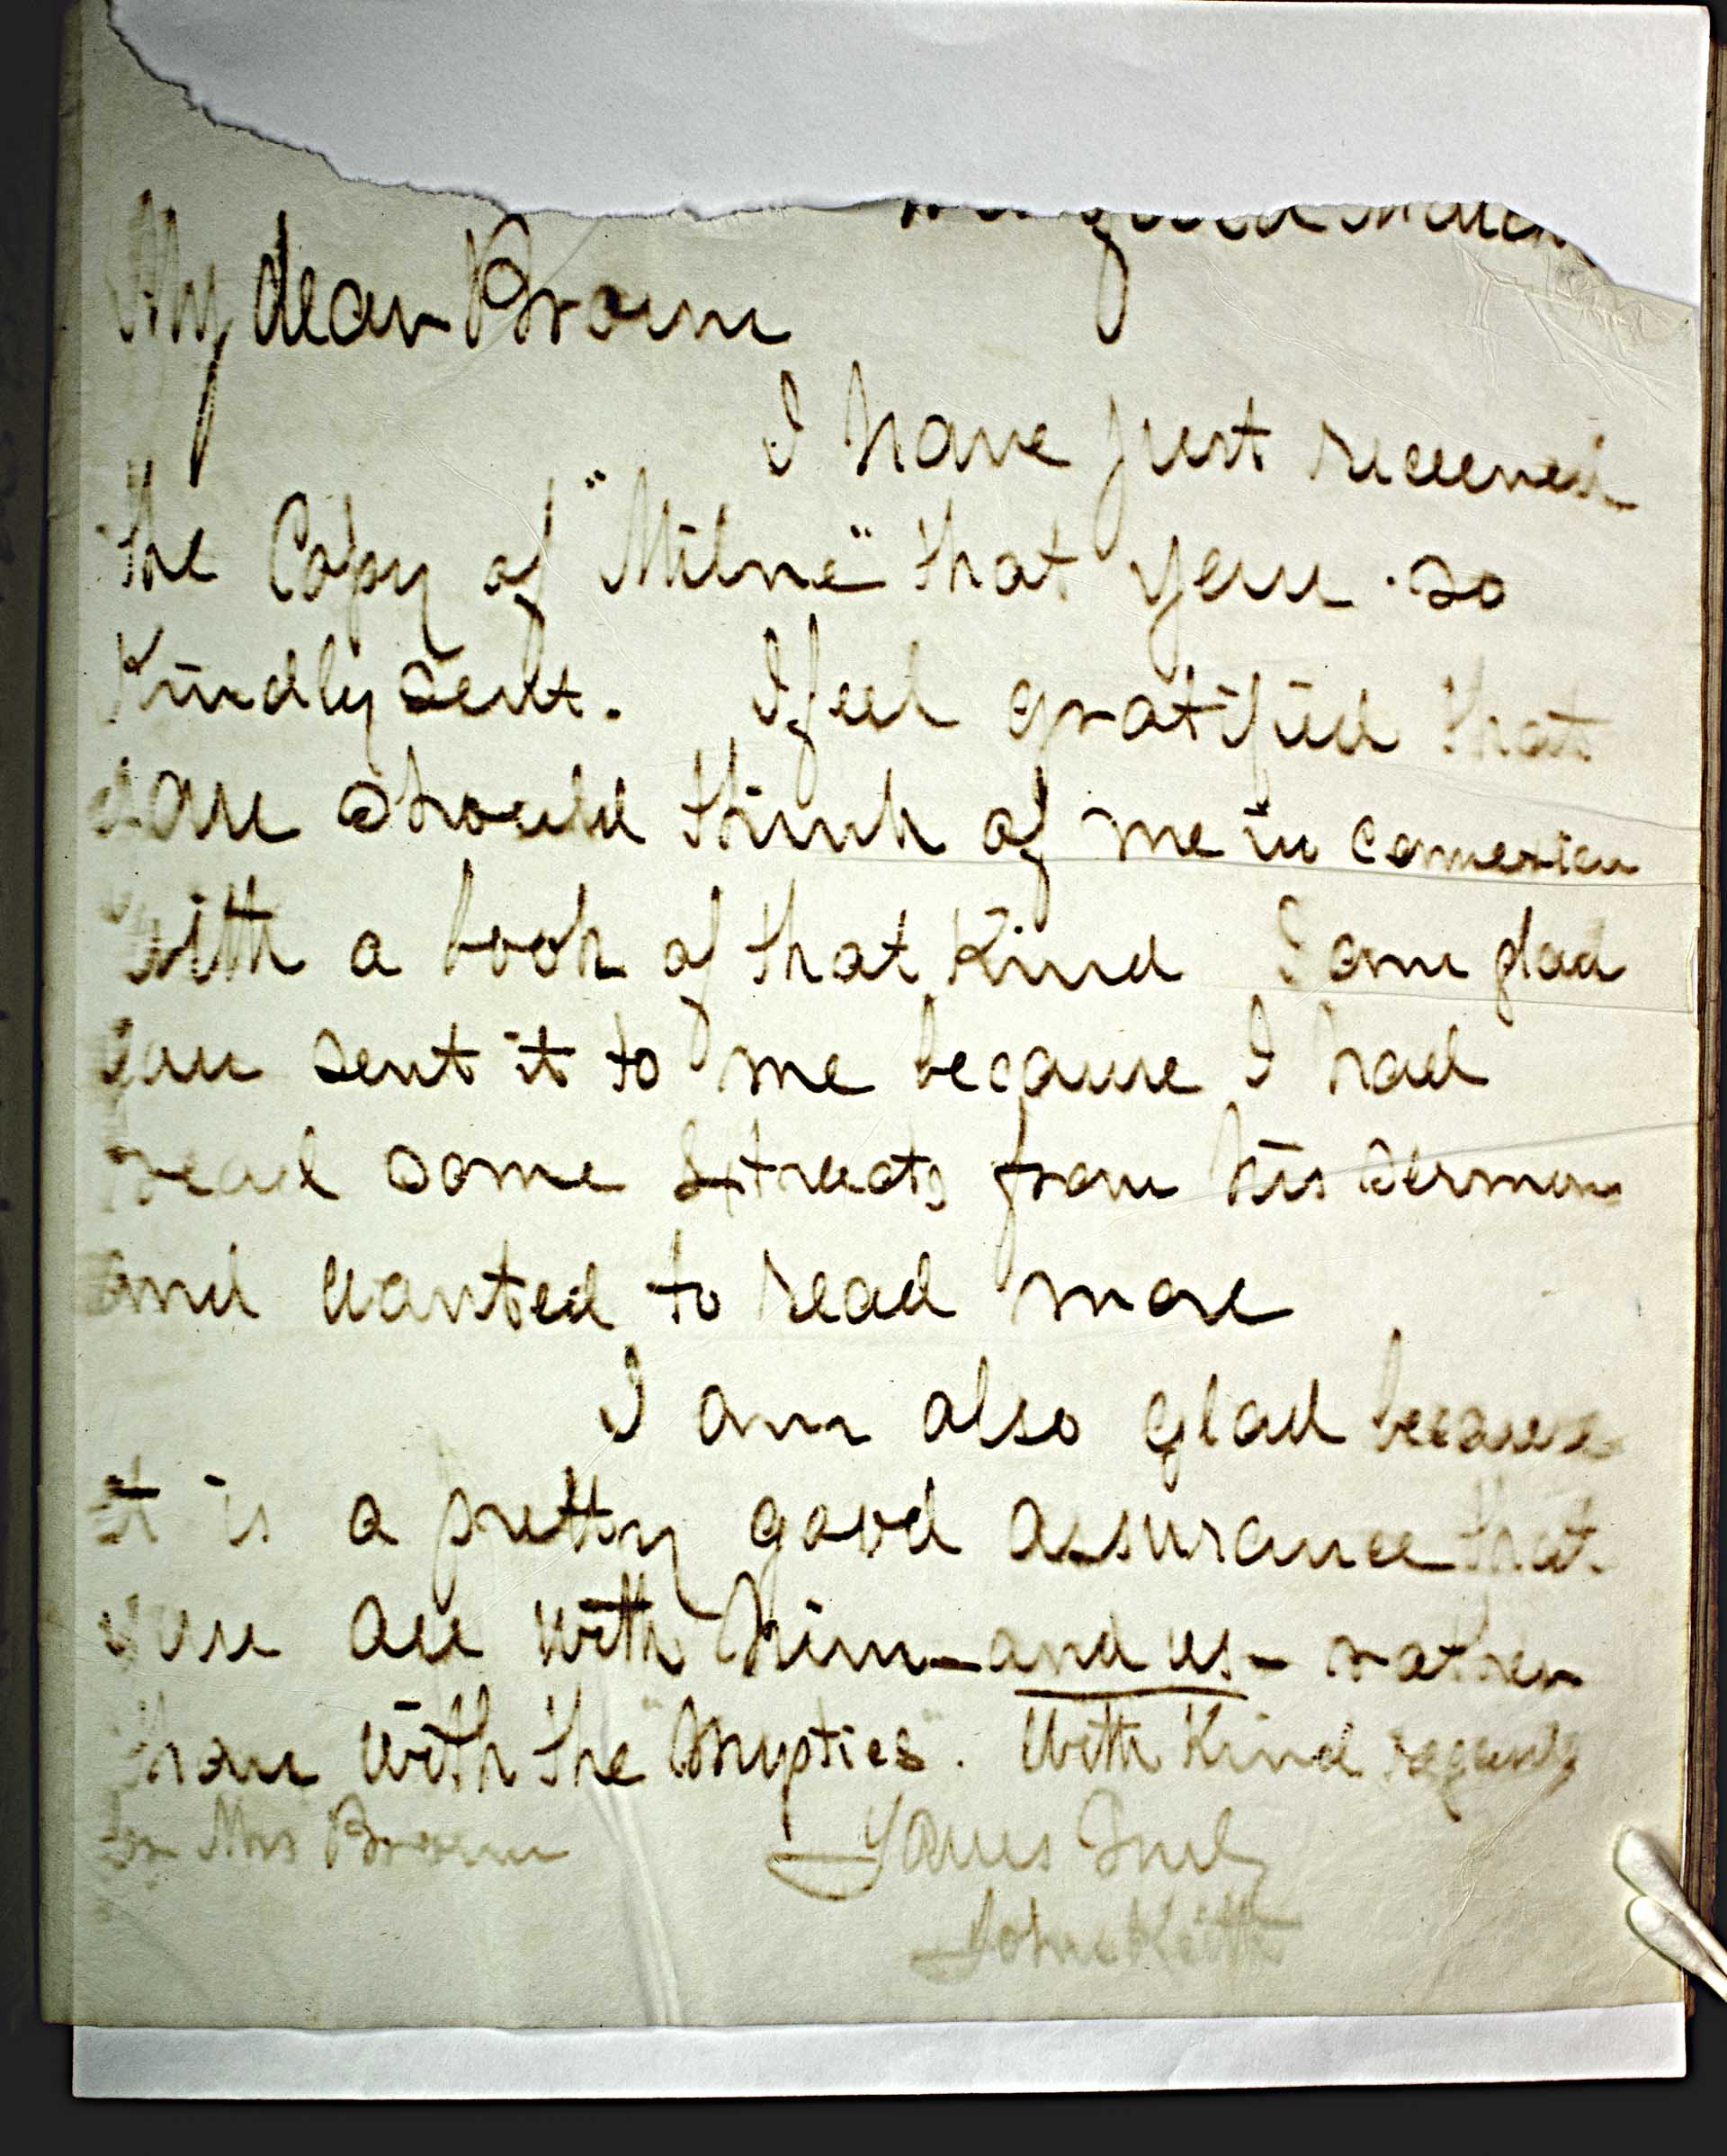 My dear Brown
I have just received
the Copy of "Milne" that you so
Kindly sent. I feel gratified that
you should think of me in connexion
with a book of that Kind I am glad
you sent it to me because I had
read some Extracts from his sermons
and wanted to read more
I am also glad because
it is a pretty good assurance that
you are with him - and us - rather
than with the "Skeptics". With Kind regards
to Mrs Brown Yours Truly
John Keith